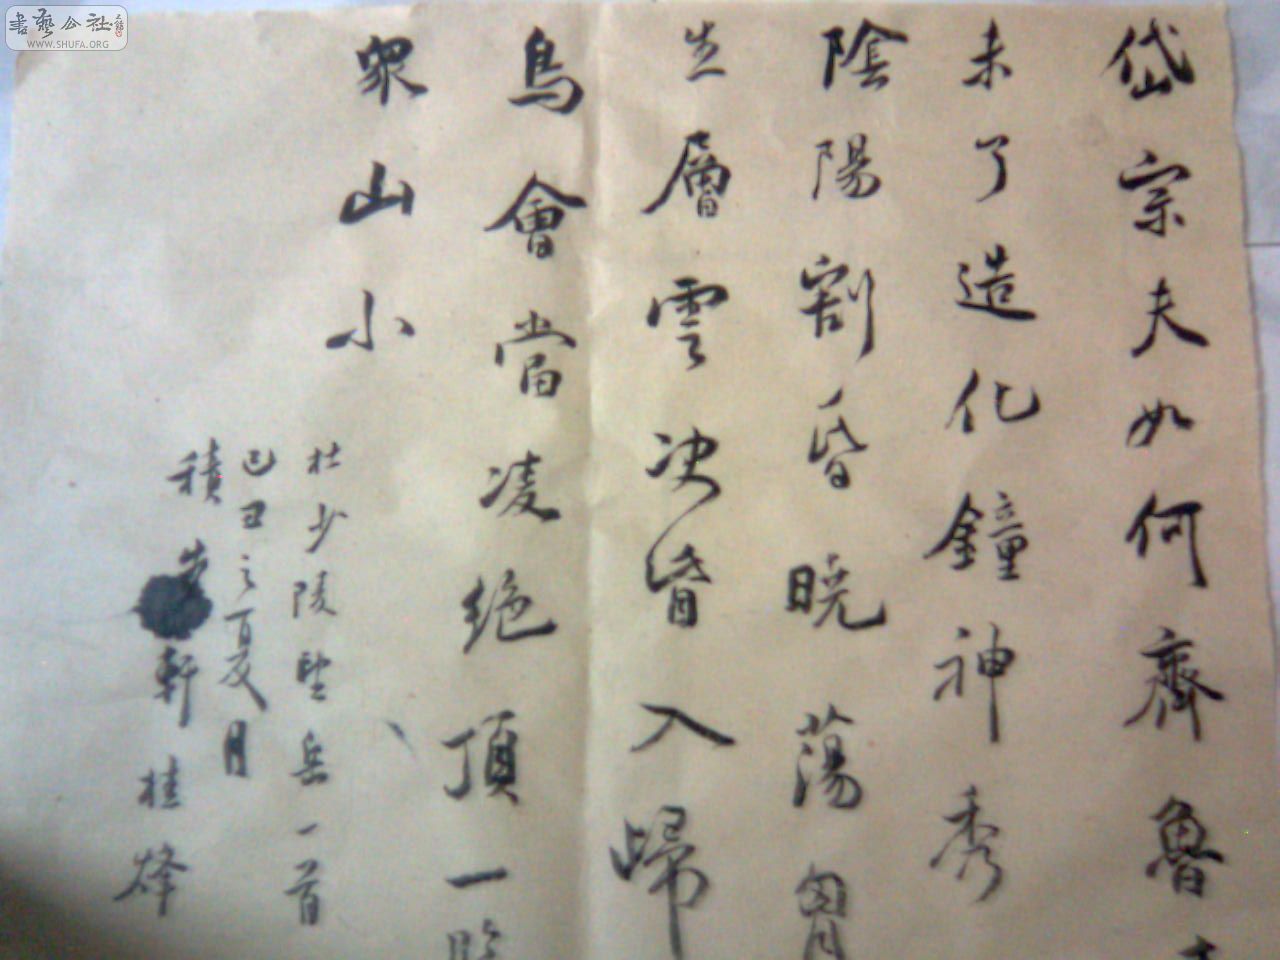 岱宗夫如何齊魯青
未了造化鐘神秀
陰陽割昏曉蕩胷
生層雲决眥入歸
鳥會當凌绝頂一覧
衆山小
杜少陵望岳一首
己丑之夏月
積軒桂烽
書藝公社
WWW.SHUFA.ORG